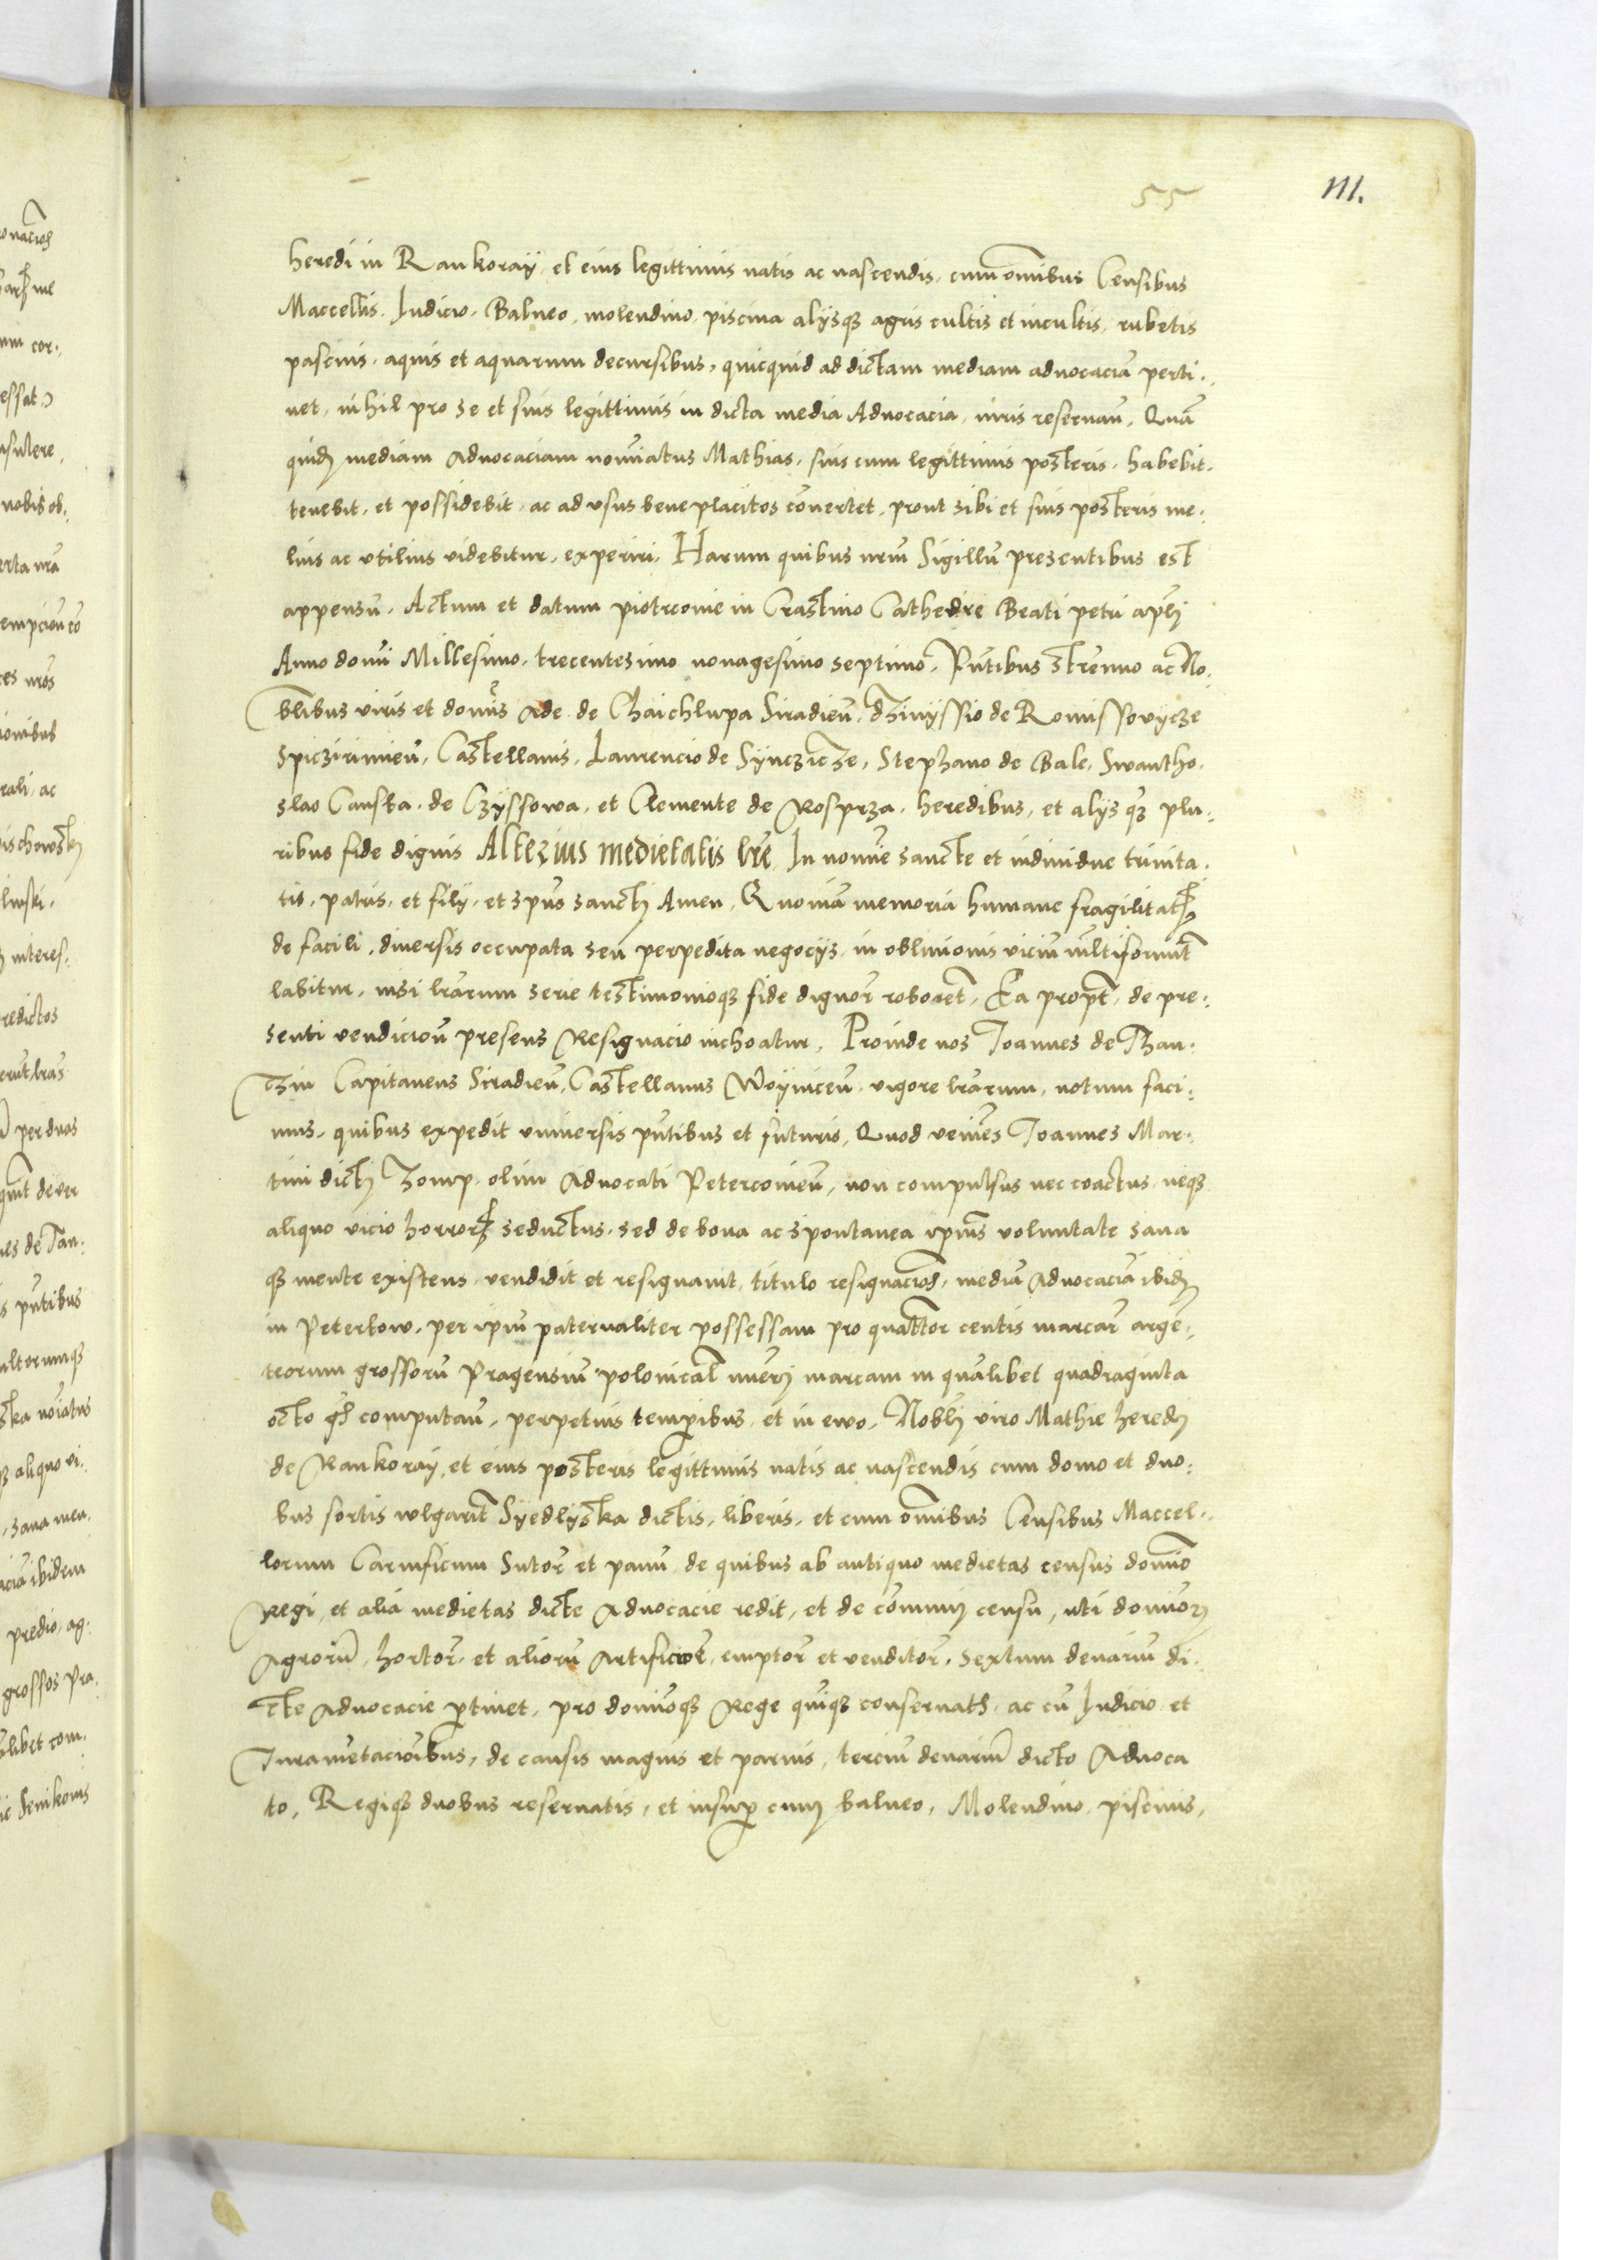 55
111.
heredi in Rankoraÿ et eius legittimis natis ac nascendis, cum om̄ibus Censibus
Maccellis. Iudicio. Balneo. molendino. piscina alÿsqʒ agris cultis et incultis, rubetis
pascuis. aquis et aquarum decursibus, quicquid ad dictam mediam aduocaciā perti-
net, nihil pro se et suis legittimis in dicta media Aduocacia, iuris reseruan̄. Quā
quidē mediam Aduocaciam noi͞atus Mathias. suis cum legittimis posteris. habebit.
tenebit, et possidebit, ac ad vsus beneplacitos co͞uertet, prout sibi et suis posteris me-
lius ac vtilius videbitur, experiri. Harum quibus nr͞m Sigillū presentibus est
appensū. Actum et datum piotrconie in Crastino Cathedre Beati petri apl͞i
Anno domi͞ Millesimo. trecentesimo nonagesimo septimo. Pn͞tibus strennuo ac No-
blibus viris et domi͞s Ade de Chaichlupa Siradien̄. Dzinÿssio de Romissovÿcze
Spiczirimien̄. Castellanis. Laurencio de Sÿnczicze, Stephano de Bale. Swantho-
slao Canska. de Czÿssowa, et Clemente de Rosprza. heredibus, et alÿs qʒ plu-
ribus fide dignis Alterius medietatis lr͞e In noi͞e sancte et indiuidue trinita-
tis. patris. et filÿ. et spu͞s sancti Amen. Quoniā memoria humane fragilitatis
de facili. diuersis occupata seu perpedita negocÿs. in obliuionis viciū multiformit͞
labitur, nisi lr͞arum serie testimonioqʒ fide dignor͞ roboret͞. Ea propt͞, de pre-
senti vendicion̄ presens Resignacio inchoatur. Proinde nos Joannes de Than-
czin Capitaneus Siradien̄. Castellanus Woÿnicen̄. vigore lr͞arum, notum faci-
mus. quibus expedit vniuersis pn͞tibus et futuris. Quod venie͞s Joannes Mar-
tini dicti Zomp. olim Aduocati Peterconien̄, non compulsus nec coactus neqʒ
aliquo vicio horroris seductus. sed de bona ac spontanea ipsius voluntate sana
qʒ mente existens vendidit et resignauit, titulo resignacio͞is, mediā Aduocaciā ibidē
in Peterkow. per ipm͞ paternaliter possessam pro quattor centis marcar͞ argen-
teorum grossorū Pragensiū polonical͞ nu͞eri marcam in qua͞libet quadraginta
octo gr͞s computan̄, perpetuis temporibus et in ewo. Nobli viro Mathie heredi
de Rankoraÿ, et eius posteris legittimis natis ac nascendis cum domo et duo-
bus sortis wlgarit͞ Sÿedlÿska dictis, liberis, et cum om̄ibus Censibus Maccel-
lorum Carnificum Sutor͞ et panū de quibus ab antiquo medietas census domi͞o
Regi, et alia medietas dicte Aduocacie redit, et de com̄uni censu, uti domor͞
Agrorū, hortor͞ et aliorū Artificior͞, emptor͞ et venditor͞, sextum denariū di-
cte Aduocacie pertinet, pro domi͞oqʒ Rege qui͞qʒ conseruatis, ac cū Iudicio et
Iurame͞tacio͞ibus, de causis magnis et paruis, terciū denariū dicto Aduoca
to, Regiqʒ duobus reseruatis, et insuper cum balneo, Molendino, piscinis,